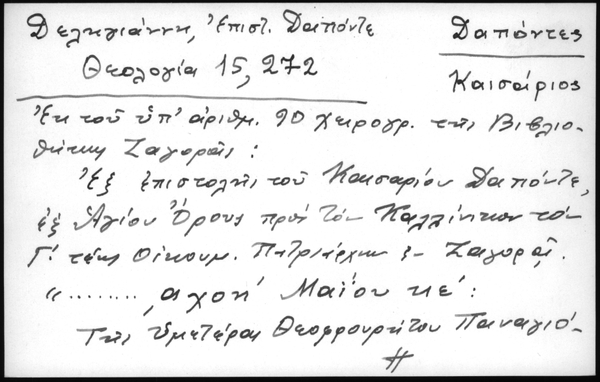 Δεληγιάννη, Ἐπιστ. Δαπόντε
Θεολογία 15, 272
Δαπόντες
Καισάριος
Ἐκ τοῦ ὑπ' ἀριθμ. 90 χειρογρ. τῆς Βιβλιο-
θήκης Ζαγορᾶς :
Ἐξ ἐπιστολῆς τοῦ Καισαρίου Δαπόντε,
ἐξ Ἁγίου Ὄρους πρὸς τὸν Καλλίνικον τὸν
Γ΄. τέως Οἰκουμ. Πατριάρχην ἐν Ζαγορᾷ.
"........, αχοή Μαΐου κε΄:
Τῆς Ὑμετέρας Θεοφρουρήτου Παναγιό-